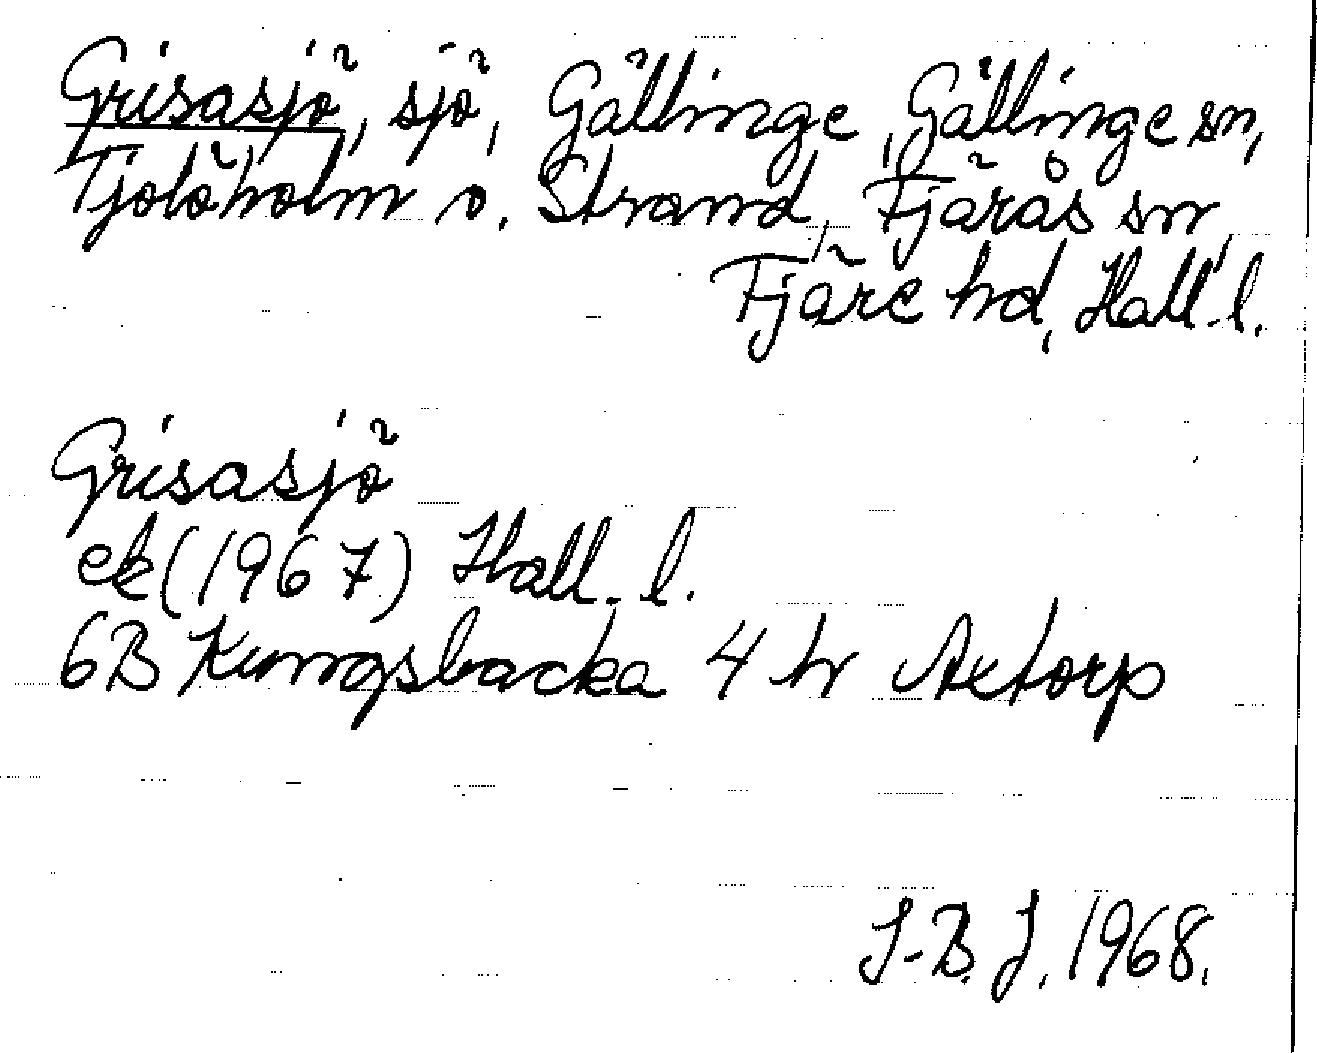 Grisasjö, sjö, Gällinge, Gällinge sn,
Tjolöholm o. Strand, Fjärås sn,
Fjäre hd, Hall. l.
Grisasjö
ek (1967) Hall. l.
6B Kungsbacka 4 h Axtorp
I-B. J. 1968.